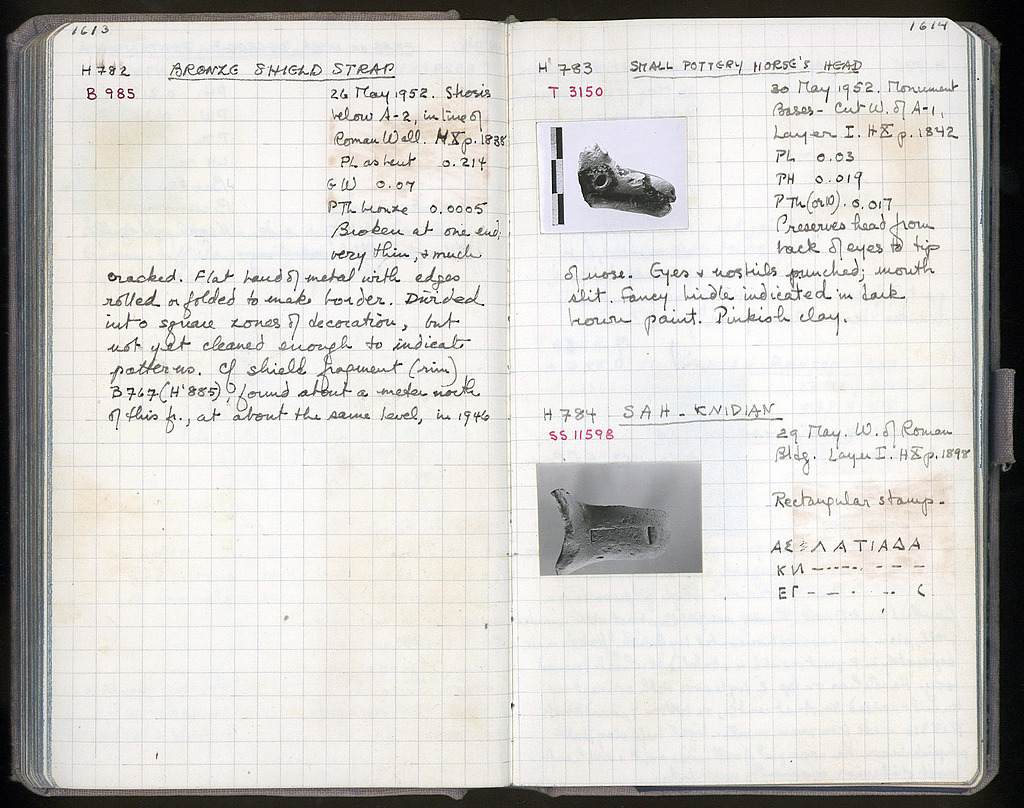 1613
H 782 BRONZE SHIELD STRAP
B 985
26 May 1952. Stosis
below A-2, in line of
Roman Wall. H X p. 1838
PL as bent 0.214
GW 0.07
PTh bronze 0.0005
Broken at one end;
very thin, & much
cracked. Flat band of metal with edges
rolled or folded to make border. Divided
into square zones of decoration, but
not yet cleaned enough to indicate
patterns. Cf shield fragment (rim)
B 767 (H'885), found about a meter north
of this fr., at about the same level, in 1946
1614
H 783 SMALL POTTERY HORSE'S HEAD
T 3150
30 May 1952. Monument
Bases - Cut W. of A-1,
Layer I. H X p. 1842
PL 0.03
PH 0.019
PTh (or W). 0.017
Preserves head from
back of eyes to tip
of nose. Eyes & nostrils punched; mouth
slit. Fancy bridle indicated in dark
brown paint. Pinkish clay.
H 784 SAH - KNIDIAN
SS 11598
29 May. W. of Roman
Bldg. Layer I. H X p. 1898
Rectangular stamp.
ΛΑΤΙΑΔΑ
ΚΝ
ΕΓ